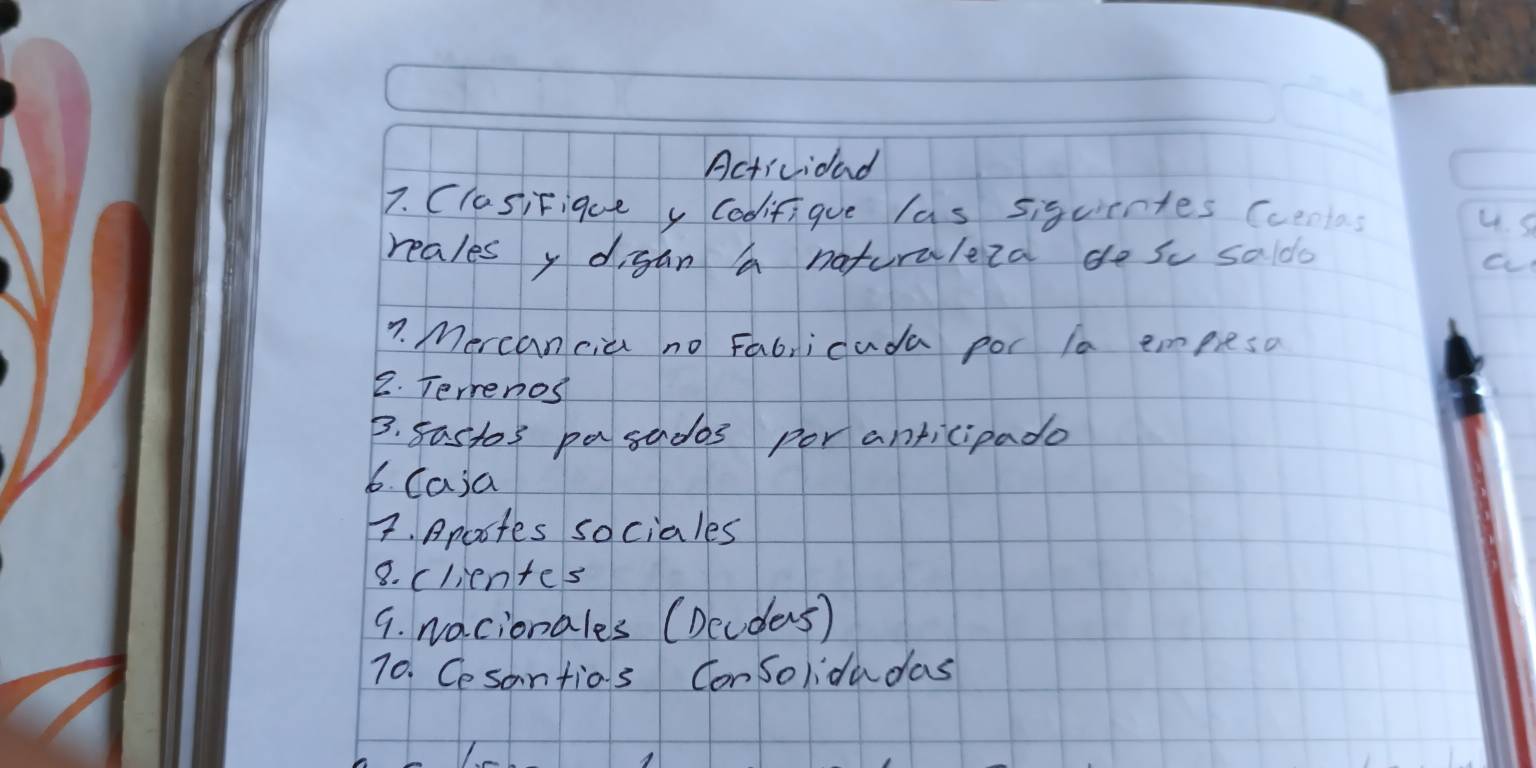 Actividad
1. Clasifique y Codifique las siguientes Cuentas
reales y digan la naturaleza de su saldo
1. Mercancia no Fabricada por la empresa
2. Terrenos
3. gastos pagados por anticipado
6. Caja
7. Aportes sociales
8. clientes
9. nacionales (Deudas)
10. Cesantias Consolidadas
4. s